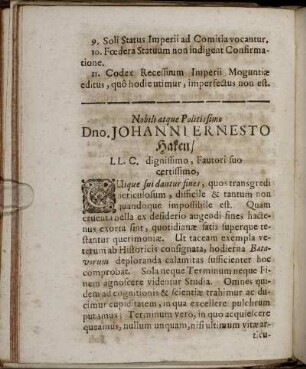 9. Soli Status Imperii ad Comitia vocantur.
10. Fœdera Statuum non indigent Confirma-
tione.
11. Codex Recessuum Imperii Moguntiæ
editus, quô hodie utimur, imperfectus non est.
Nobili atque Politissimo
Dno. JOHANNI ERNESTO
Haken/
I. L. C. dignissimo, Fautori suo
certissimo,
CUique sui dantur fines, quos transgredi
periculosum, difficile & tantum non
quandoque impossibile est. Quam
cruenta bella ex desiderio augendi fines hacte-
nus exorta sint, quotidianæ satis superque te-
stantur querimoniæ. Ut taceam exempla ve-
terum ab Historicis consignata, hodierna Bata-
vorum deploranda calamitas sufficienter hoc
comprobat. Sola neque Terminum neque Fi-
nem agnoscere videntur Studia. Omnes qui-
dem ad cognitionis & scientiæ trahimur ac du-
cimur cupiditatem, in qua excellere pulchrum
putamus; Terminum vero, in quo acquiescere
queamus, nullum unquam, nisi ultimum vitæ ar-
ticu-